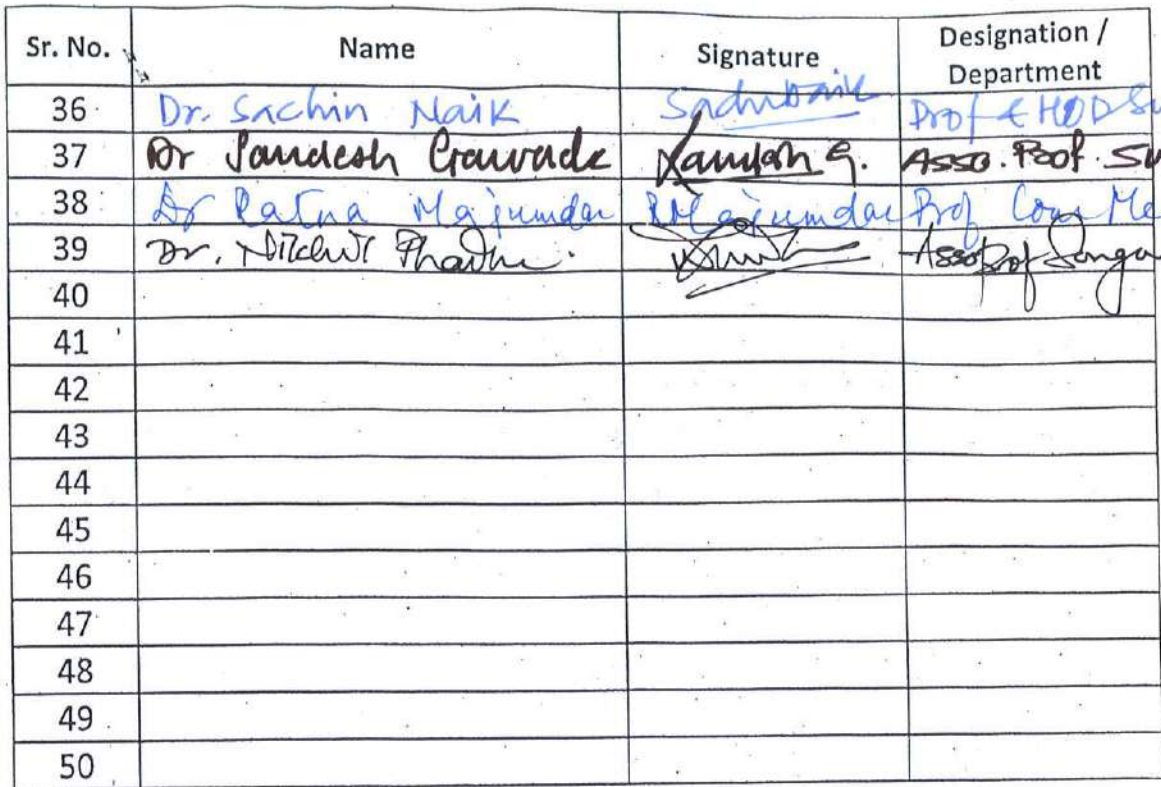 Sr. No. Name Signature Designation /
Department
36 Dr. Sachin Naik Prof & HOD Su
37 Dr Sandesh Gawade Sandesh G. Asso. Prof. Su
38 Dr Ratna Majumdar RMajumdar Prof Com Me
39 Dr. Asso Prof
40
41
42
43
44
45
46
47
48
49
50